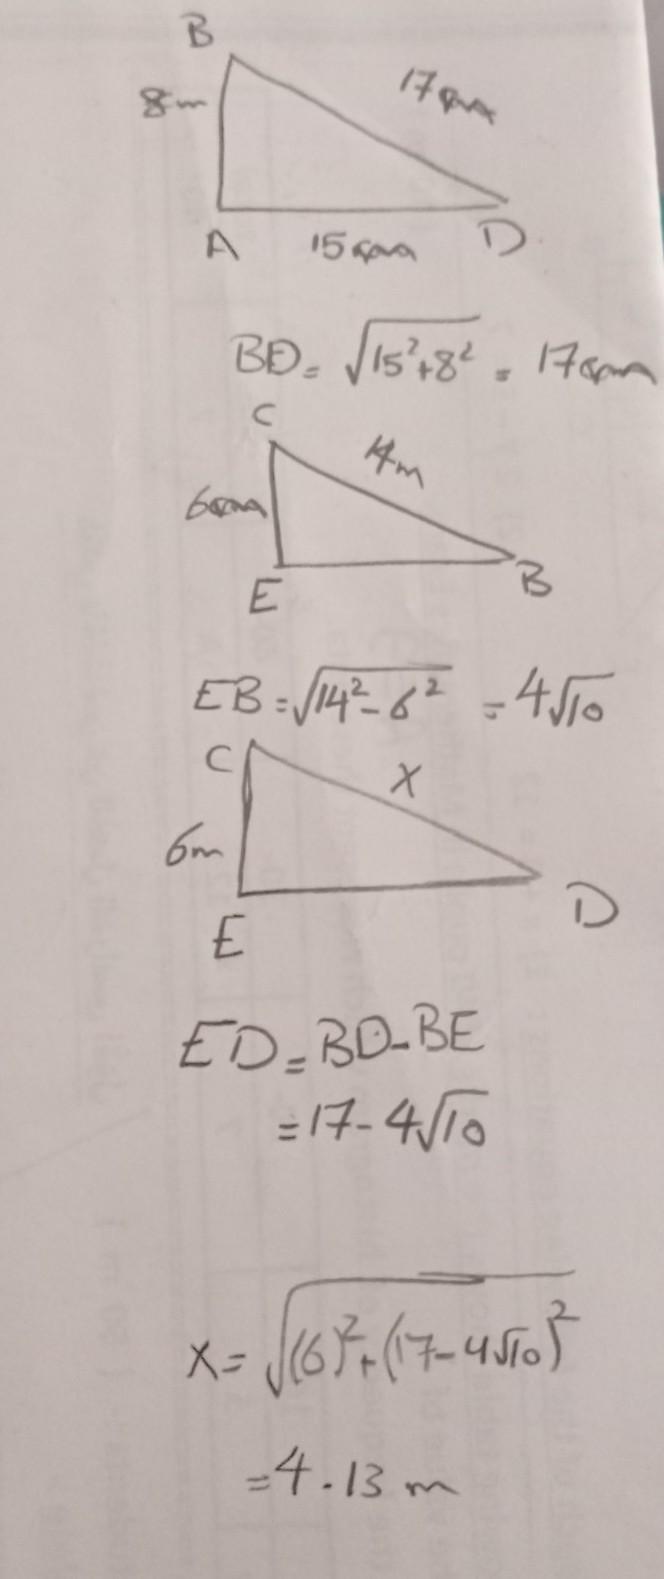 B
8m
17m
A 15m D
BD = √15²+8² = 17m
C
14m
6m
E
B
EB = √14²-6² = 4√10
C
X
6m
D
E
ED = BD-BE
= 17-4√10
X = √(6)²+(17-4√10)²
= 4.13 m